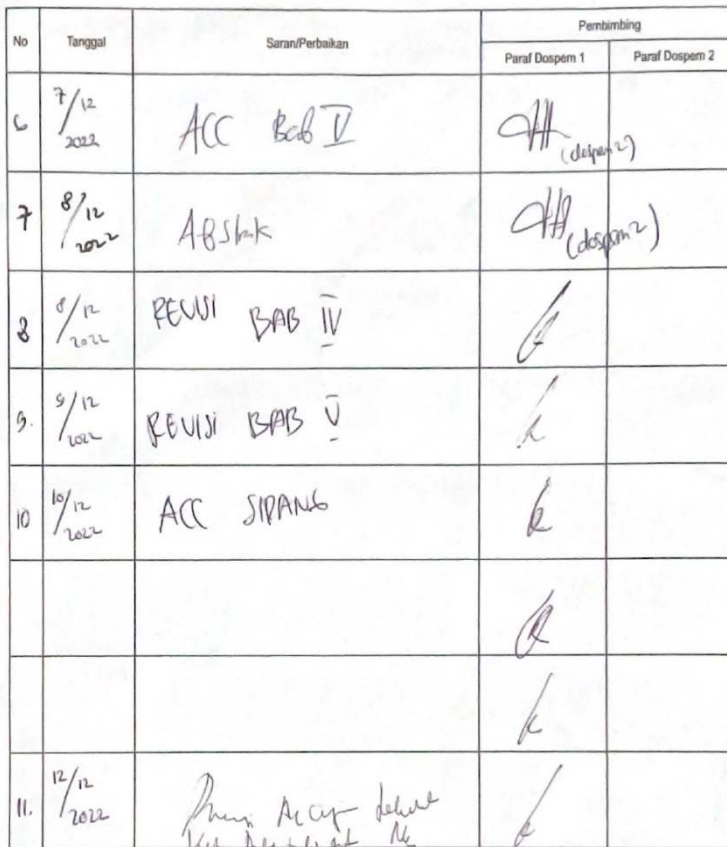 No Tanggal Saran/Perbaikan Pembimbing
Paraf Dospem 1 Paraf Dospem 2
6 7/12 2022 ACC Bab V (dospem 2)
7 8/12 2022 Abstrak (dospem 2)
8 8/12 2022 REVISI BAB IV
9. 9/12 2022 REVISI BAB V
10 10/12 2022 ACC SIDANG
11. 12/12 2022